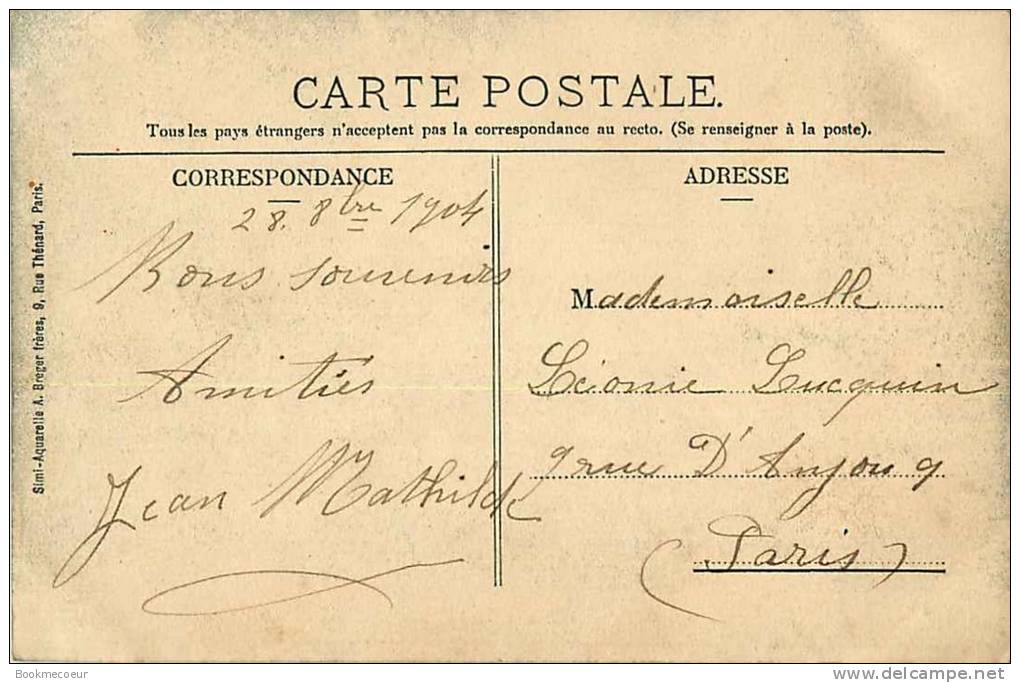 CARTE POSTALE.
Tous les pays étrangers n'acceptent pas la correspondance au recto. (Se renseigner à la poste).
CORRESPONDANCE
28. 8bre 1904
Bons souvenirs
Amitiés
Jean Mathilde
ADRESSE
Mademoiselle
Léonie Lucquin
9 rue D'Anjou 9
(Paris)
Simi-Aquarelle A. Breger frères, 9, Rue Thénard, Paris.
Bookmecoeur
delcampe.net